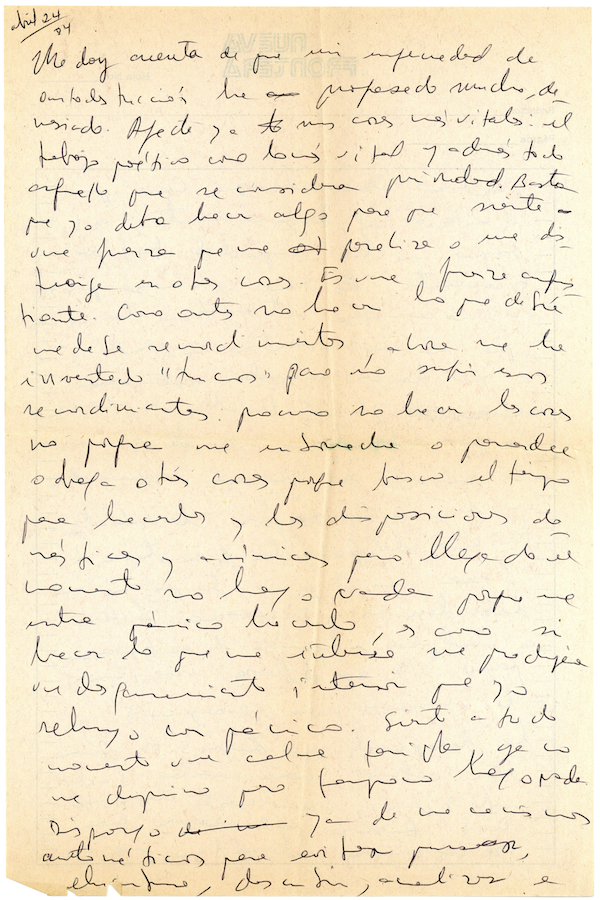 abril 24
84
Me doy cuenta de que mi enfermedad de
autodestrucción ha progresado mucho, de-
masiado. Afecta ya a mis cosas más vitales: el
trabajo poético como lo más vital y además todo
aquello que se considera prioridad. Basta
que yo deba hacer algo para que sienta
una fuerza que me paraliza o me dis-
traiga en otras cosas. Es una fuerza angus
tiante. Como antes no hacer lo que debía
me daba remordimientos ahora me he
inventado "trucos" para no sufrir esos
remordimientos: procuro no hacer las cosas
no porque me emborrache o parrandee
o haga otras cosas porque busco el tiempo
para hacerlas y las disposiciones do
mésticas y anímicas pero llegado el
momento no hago nada porque me
entra pánico hacerlo, es como si
hacer lo que me interesa me produjera
un desgarramiento interior que yo
rehuyo con pánico. Siento a todo
momento una calma
me deprimo pero tampoco hago nada
Dispongo ya de mecanismos
automáticos para evitar pensar,
discutir, analizar e